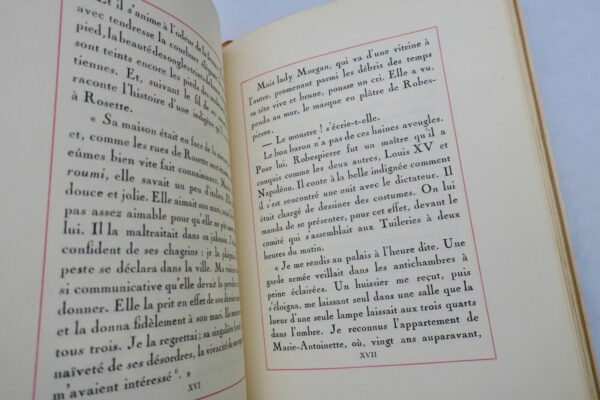 Et il s'anime à l'odeur de la
avec tendresse la courbure élégante
pied, la beauté des ongles teints de
sont teints encore les pieds des
tiennes. Et, suivant le fil de ses
raconte l'histoire d'une indigène qu'il
à Rosette.
« Sa maison était en face de la
et, comme les rues de Rosette sont
eûmes bien vite fait connaissance. Ma
roumi, elle savait un peu d'italien. Elle
douce et jolie. Elle aimait son mari, mais
pas assez aimable pour qu'elle ne
lui. Il la maltraitait dans sa jalousie. J'étais
confident de ses chagrins : je la plaignais. La
peste se déclara dans la ville. Ma voisine
si communicative qu'elle devait la prendre et
donner. Elle la prit en effet de son
et la donna fidèlement à son mari.
tous trois. Je la regrettai; sa singulière
naïveté de ses désordres, la vivacité de ses
m'avaient intéressé ». »
XVI
Mais lady Morgan, qui va d'une vitrine à
l'autre, promenant parmi les débris des temps
sa tête vive et brune, pousse un cri. Elle a vu,
pendu au mur, le masque en plâtre de Robes-
pierre.
— Le monstre ! s'écrie-t-elle.
Le bon baron n'a pas de ces haines aveugles.
Pour lui, Robespierre fut un maître qu'il a
conquis comme les deux autres, Louis XV et
Napoléon. Il conte à la belle indignée comment
il s'est rencontré une nuit avec le dictateur. Il
était chargé de dessiner des costumes. On lui
manda de se présenter, pour cet effet, devant le
comité qui s'assemblait aux Tuileries à deux
heures du matin.
« Je me rendis au palais à l'heure dite. Une
garde armée veillait dans les antichambres à
peine éclairées. Un huissier me reçut, puis
s'éloigna, me laissant seul dans une salle que la
lueur d'une seule lampe laissait aux trois quarts
dans l'ombre. Je reconnus l'appartement de
Marie-Antoinette, où, vingt ans auparavant,
XVII